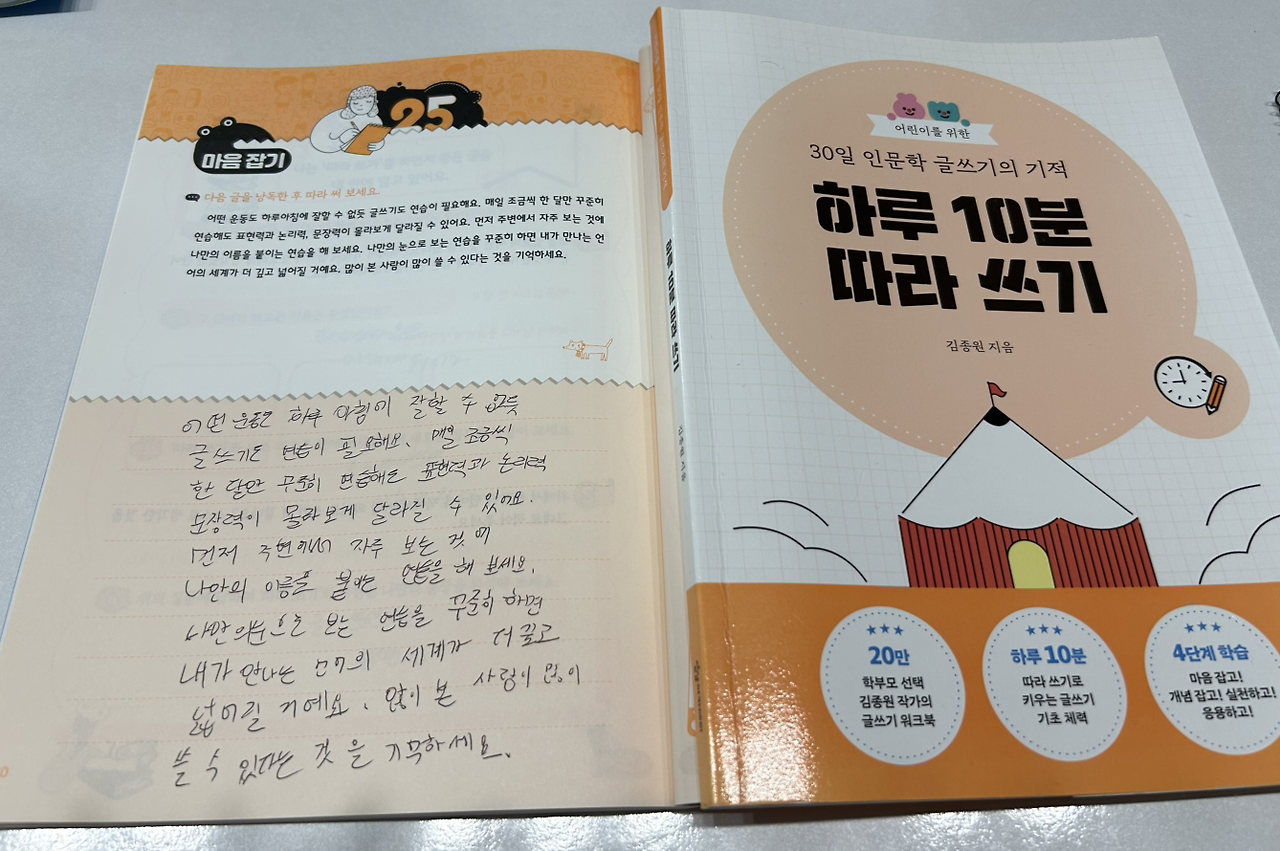 25
마음 잡기
다음 글을 낭독한 후 따라 써 보세요.
어떤 운동도 하루아침에 잘할 수 없듯 글쓰기도 연습이 필요해요. 매일 조금씩 한 달만 꾸준히
연습해도 표현력과 논리력, 문장력이 몰라보게 달라질 수 있어요. 먼저 주변에서 자주 보는 것에
나만의 이름을 붙이는 연습을 해 보세요. 나만의 눈으로 보는 연습을 꾸준히 하면 내가 만나는 언
어의 세계가 더 깊고 넓어질 거예요. 많이 본 사람이 많이 쓸 수 있다는 것을 기억하세요.
어떤 운동도 하루 아침에 잘할 수 없듯
글쓰기도 연습이 필요해요. 매일 조금씩
한 달만 꾸준히 연습해도 표현력과 논리력
문장력이 몰라보게 달라질 수 있어요.
먼저 주변에서 자주 보는 것에
나만의 이름을 붙이는 연습을 해 보세요.
나만의 눈으로 보는 연습을 꾸준히 하면
내가 만나는 언어의 세계가 더 깊고
넓어질 거예요. 많이 본 사람이 많이
쓸 수 있다는 것을 기억하세요.
어린이를 위한
30일 인문학 글쓰기의 기적
하루 10분
따라 쓰기
김종원 지음
20만
학부모 선택
김종원 작가의
글쓰기 워크북
하루 10분
따라 쓰기로
키우는 글쓰기
기초 체력
4단계 학습
마음 잡고!
개념 잡고! 실천하고!
응용하고!
하루 10분 따라 쓰기
김종원 지음